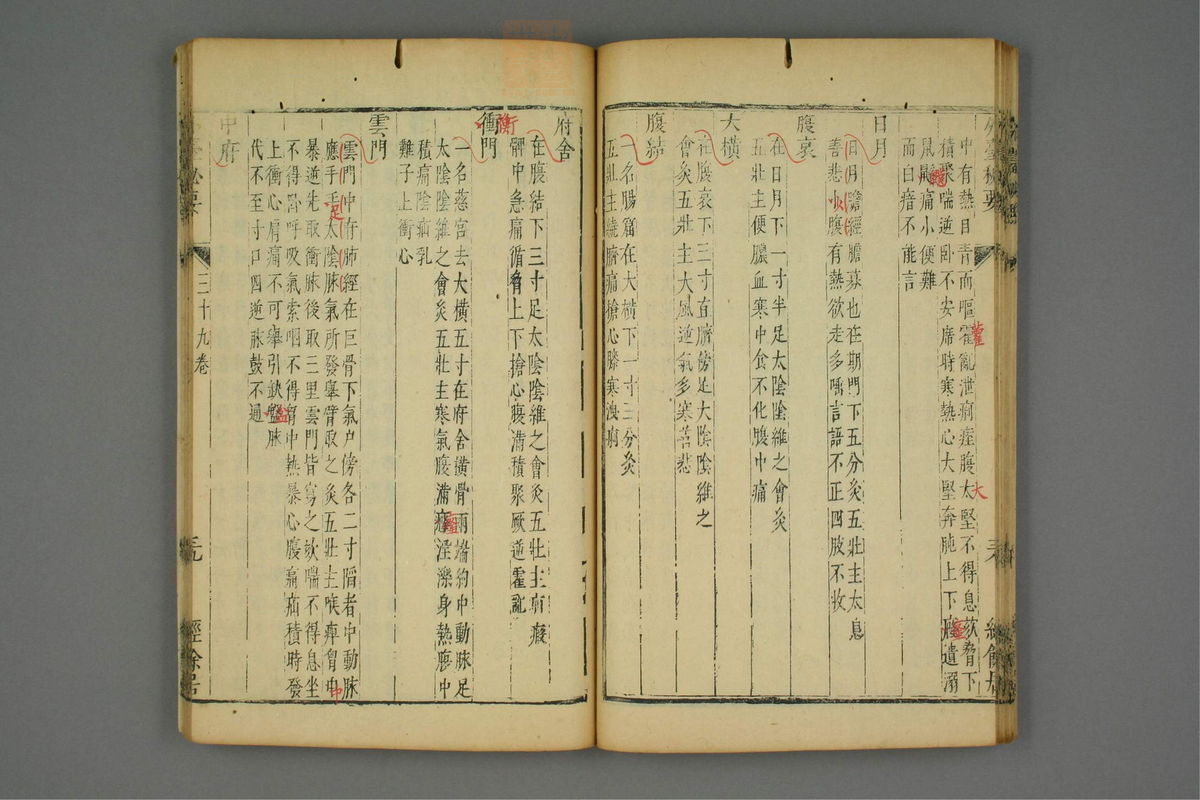 中有熱目青而嘔霍亂泄痢痓腹太堅不得息欬脅下
積聚喘逆卧不安席時寒熱心大堅奔肫上下遺溺
鼠鼷痛小便難
而白瘖不能言
日月
日月膽經膽募也在期門下五分灸五壯主太息
善悲小腹有熱欲走多唾言語不正四肢不收
腹哀
在日月下一寸半足太陰陰維之會灸
五壯主便膿血寒中食不化腹中痛
大橫
在腹哀下三寸直臍傍足大陰陰維之
會灸五壯主大風逆氣多寒善悲
腹結
一名腸窟在大橫下一寸三分灸
五壯主繞臍痛搶心膝寒洩痢
府舍
在腹結下三寸足太陰陰維之會灸五壯主疝瘕
髀中急痛循脅上下搶心腹滿積聚厥逆霍亂
衝門
一名慈宮去大橫五寸在府舍橫骨兩端約中動脉足
太陰陰維之會灸五壯主寒氣腹滿癃淫濼身熱腹中
積痛陰疝乳
難子上衝心
雲門
雲門中府肺經在巨骨下氣户傍各二寸陷者中動脉
應手手太陰脉氣所發舉臂取之灸五壯主喉痺胷中
暴逆先取衝脉後取三里雲門皆寫之欬喘不得息坐
不得卧呼吸氣索咽不得胷中熱暴心腹痛疝積時發
上衝心肩痛不可舉引缺盆脉
代不至寸口四逆脉鼓不過
中府
三十九卷
經餘居